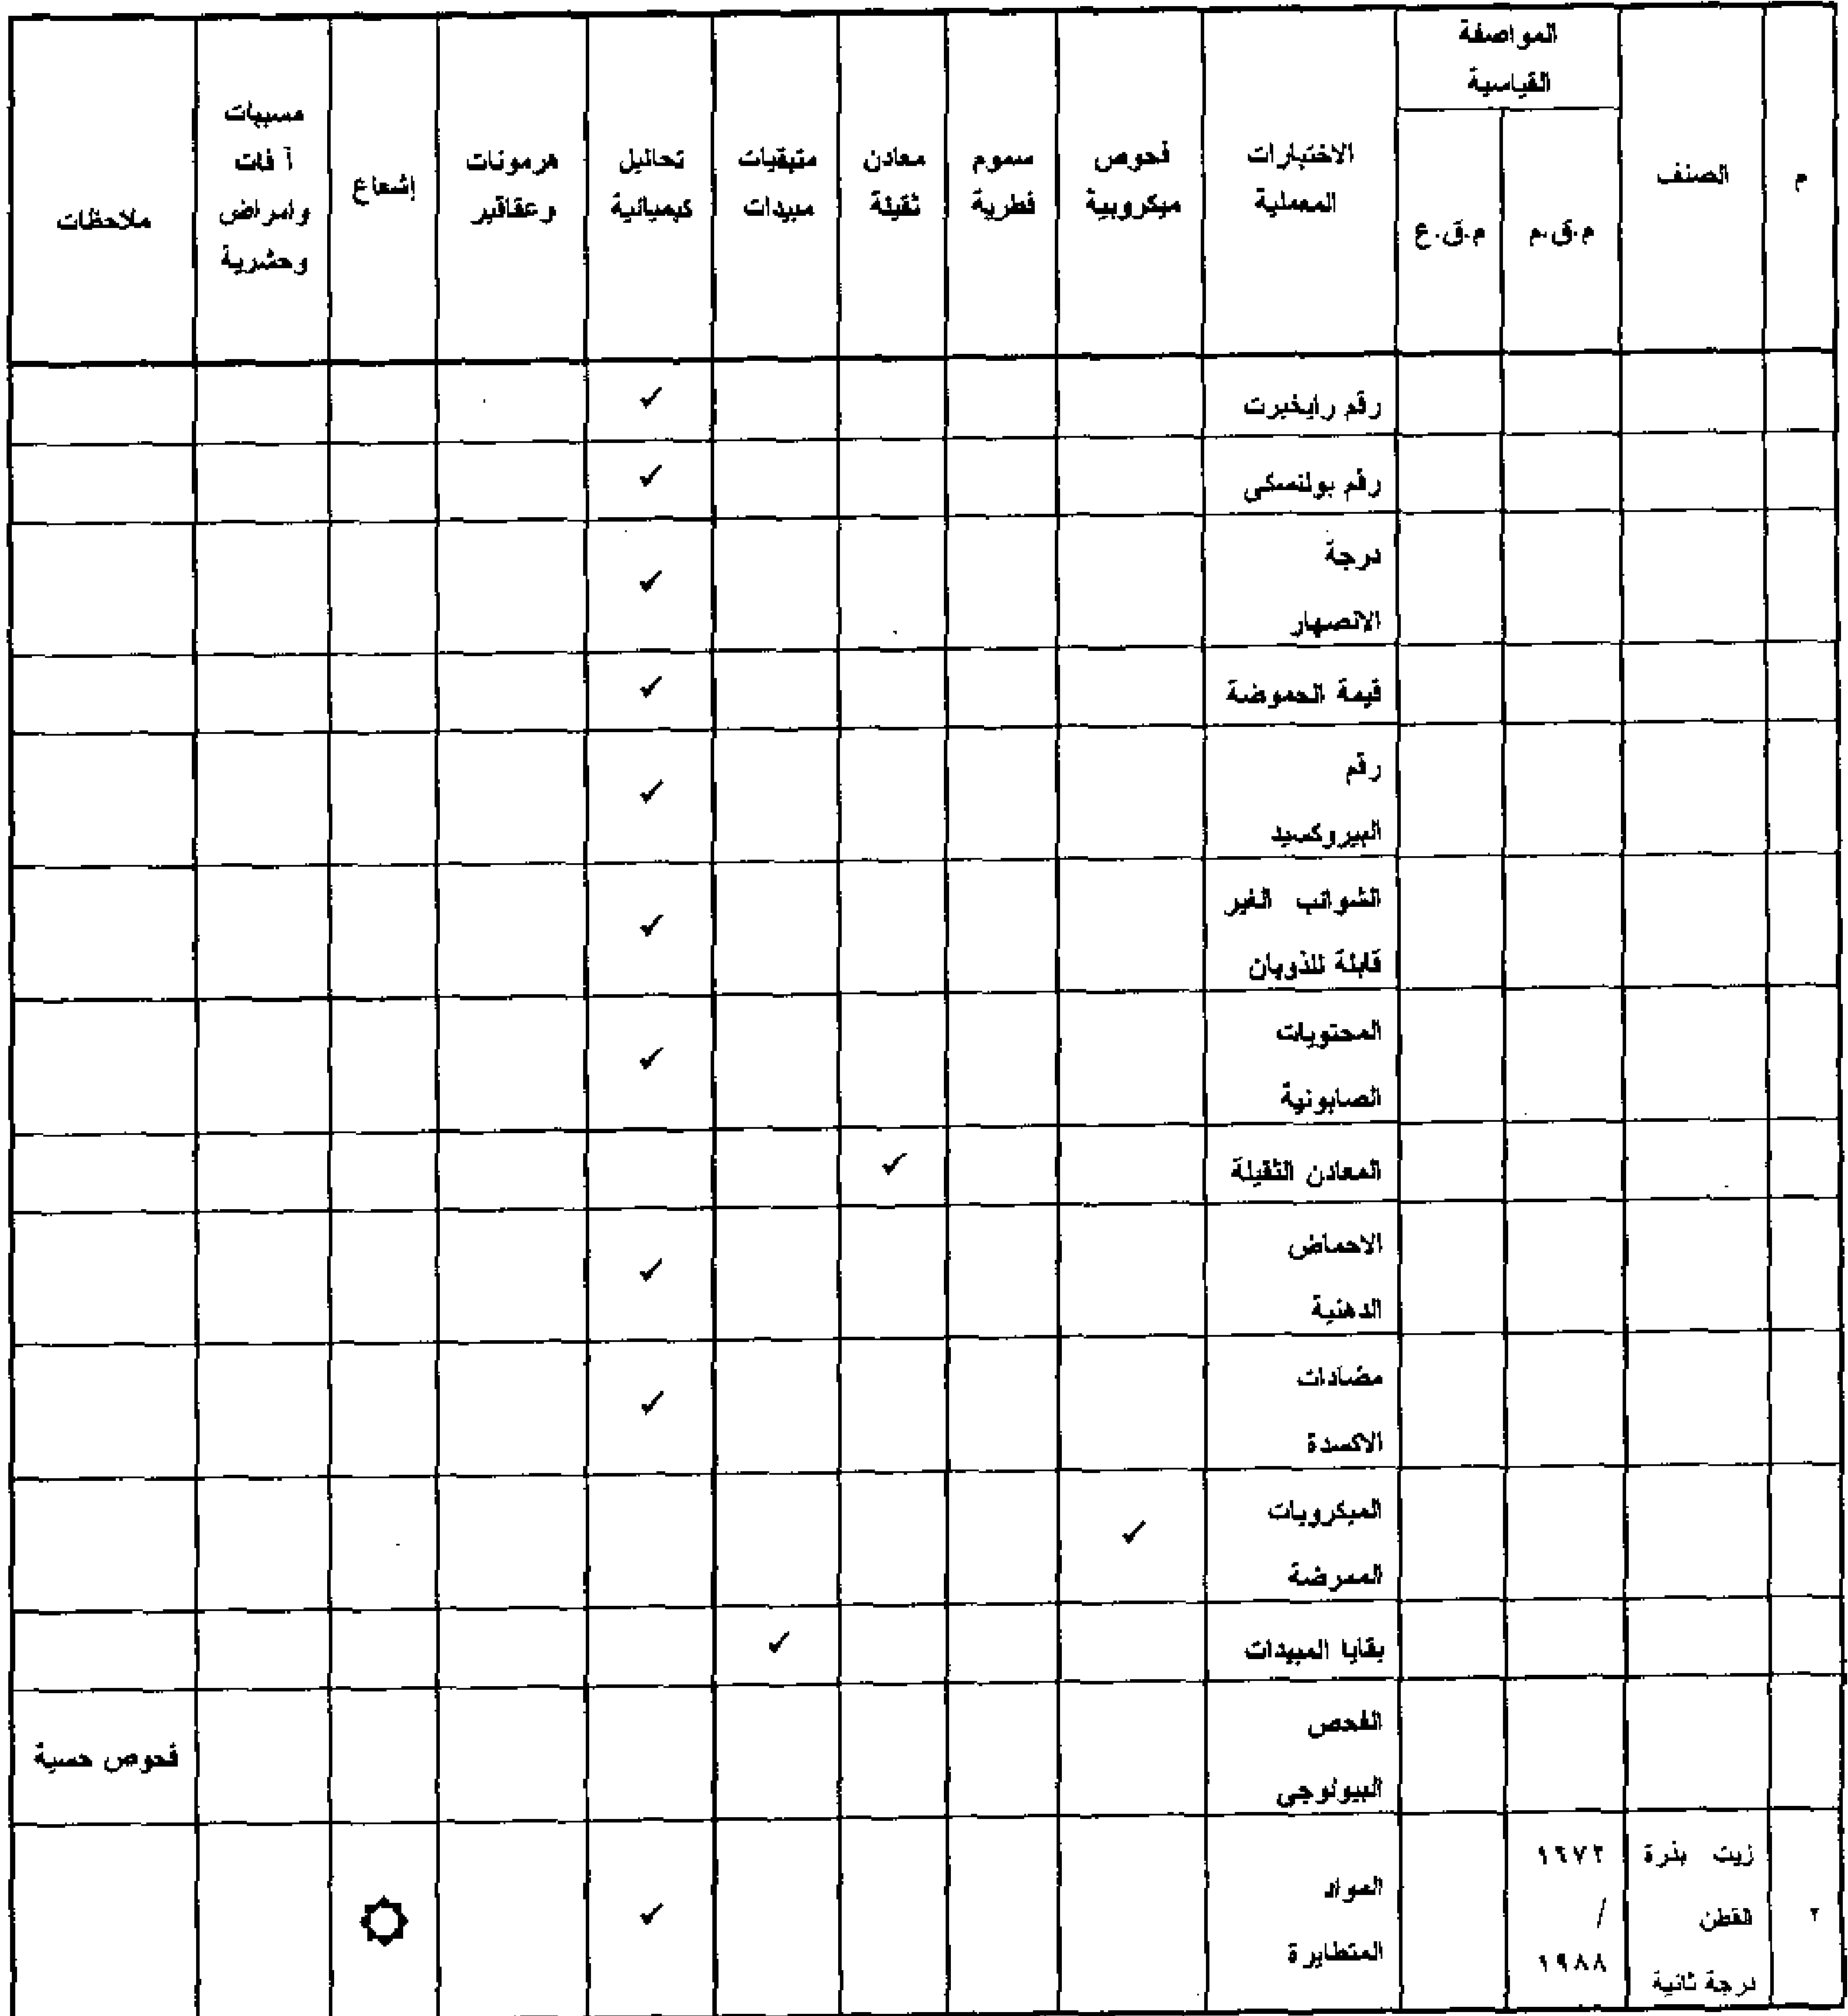 م
الصنف
المواصفة
القياسية
م.ق.م
م.ق.ع
الاختبارات
المعملية
فحوص
ميكروبية
سموم
فطرية
معادن
ثقيلة
متبقيات
مبيدات
تحاليل
كيميائية
هرمونات
وعقاقير
إشعاع
مسببات
آفات
وامراض
وحشرية
ملاحظات
رقم رايخيرت ✓
رقم بولنسكى ✓
درجة
الانصهار ✓
قيمة الحموضة ✓
رقم
البيروكسيد ✓
الشوائب الغير
قابلة للذوبان ✓
المحتويات
الصابونية ✓
المعادن الثقيلة ✓
الاحماض
الدهنية ✓
مضادات
الاكسدة ✓
الميكروبات
الممرضة ✓
بقايا المبيدات ✓
الفحص
البيولوجى
فحوص حسية
٢
زيت بذرة
القطن
درجة ثانية
١٦٧٢
/
١٩٨٨
المواد
المتطايرة ✓